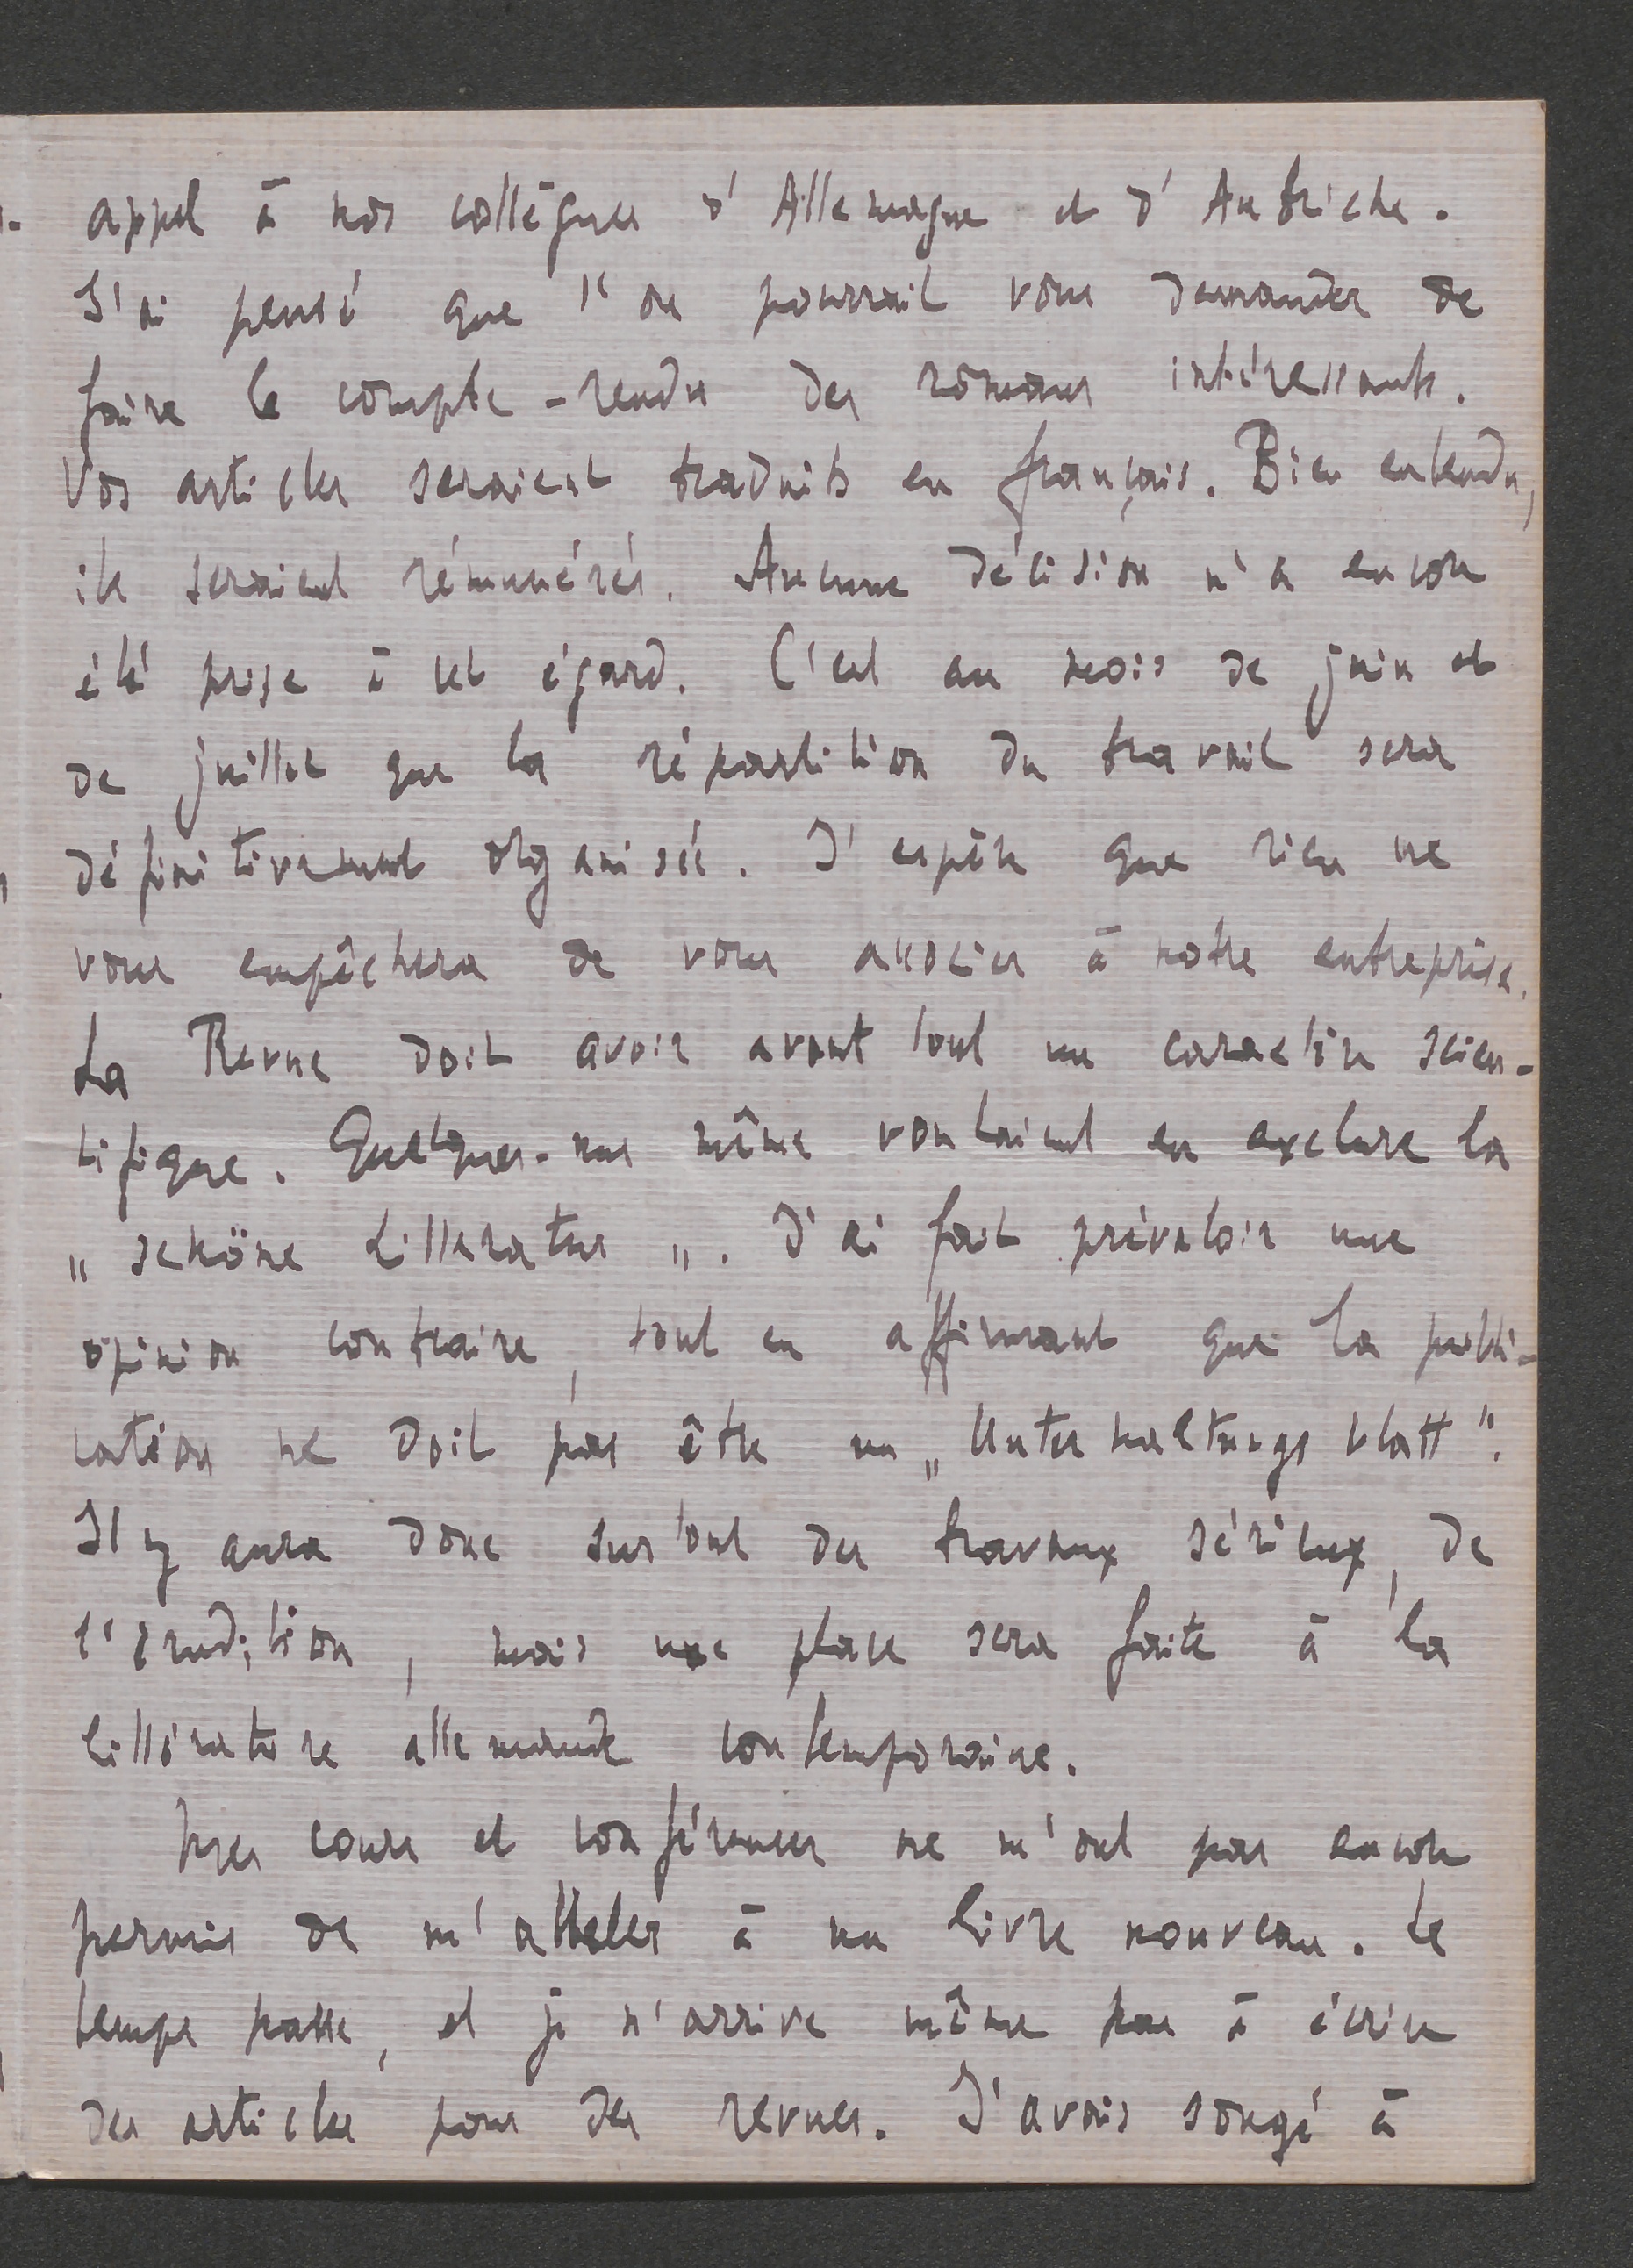 appel à nos collègues d'Allemagne et d'Autriche.
J'ai pensé que l'on pourrait vous demander de
faire le compte-rendu des romans intéressants.
Vos articles seraient traduits en français. Bien entendu,
ils seraient rémunérés. Aucune décision n'a encore
été prise à cet égard. C'est au mois de juin et
de juillet que la répartition du travail sera
définitivement organisée. J'espère que rien ne
vous empêchera de vous associer à notre entreprise.
La Revue doit avoir avant tout un caractère scien-
tifique. Quelques-uns même voulaient en exclure la
„schöne Litteratur„. J'ai fait prévaloir une
opinion contraire, tout en affirmant que la publi-
cation ne doit pas être un „Unterhaltungsblatt".
Il y aura donc surtout des travaux sérieux, de
l'érudition, mais une place sera faite à la
littérature allemande contemporaine.
Mes cours et conférences ne m'ont pas encore
permis de m'atteler à un livre nouveau. Le
temps passe, et je n'arrive même pas à écrire
des articles pour des revues. J'avais songé à